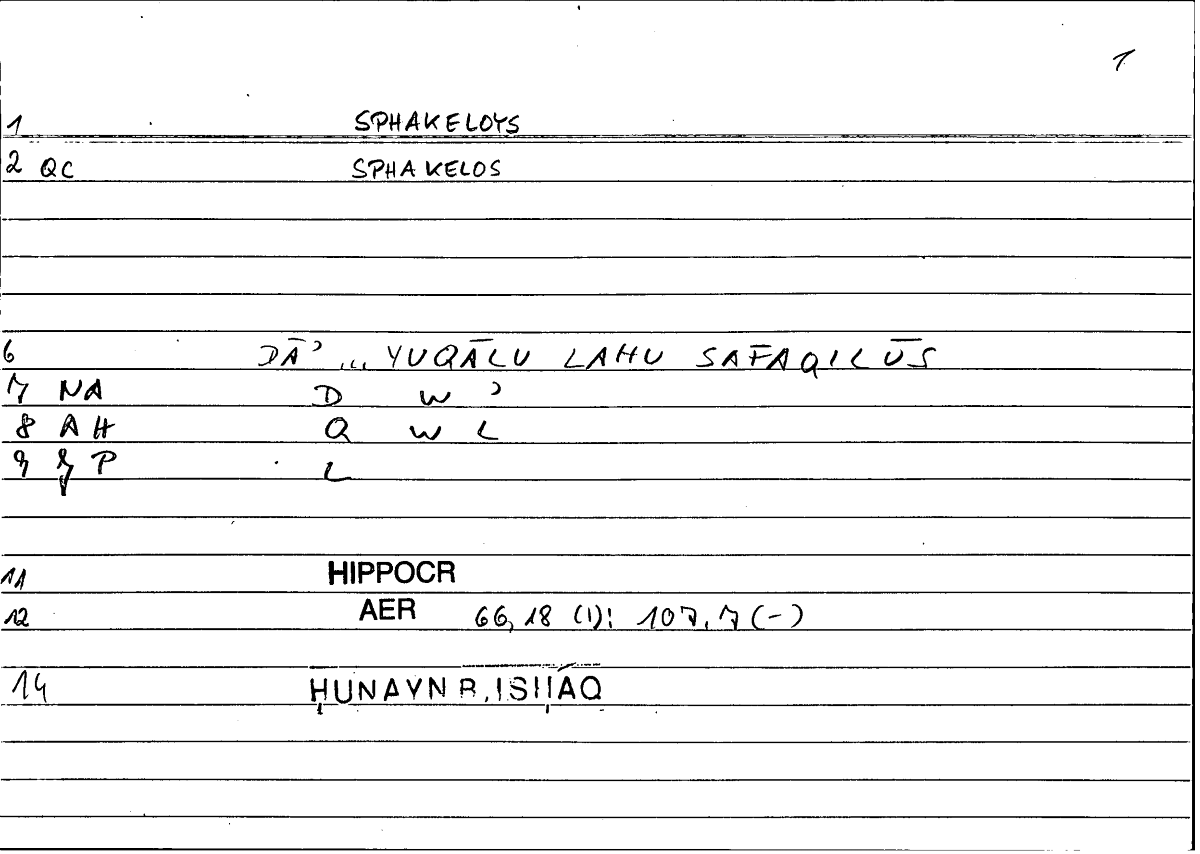 1
1 SPHAKELOYS
2 QC SPHAKELOS
6 DĀʾ ... YUQĀLU LAHU SAFAQILŪS
7 NA D W ʾ
8 AH Q W L
9 P L
11 HIPPOCR
12 AER 66,18 (1): 107,7 (-)
14 ḤUNAYN B. ISḤĀQ